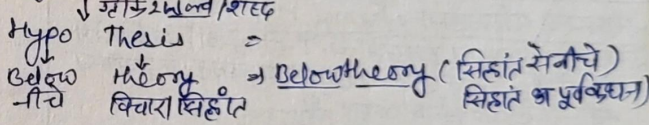 ↓ ग्रीक 2 word / शब्द
Hypo Thesis =
↓ ↓
Below theory ⇒ Below theory (सिद्दांत से नीचे)
नीचे विचारा सिद्दांत सिद्दांत का पूर्वकथन)